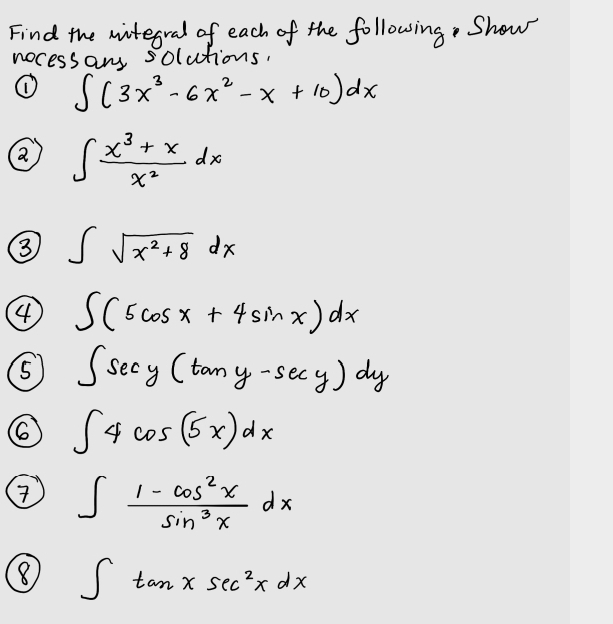 Find the integral of each of the following. Show
necessary solutions.
① ∫(3x³ - 6x² - x + 10)dx
② ∫ (x³ + x)/x² dx
③ ∫ √(x² + 8) dx
④ ∫(5 cos x + 4 sin x)dx
⑤ ∫ sec y (tan y - sec y) dy
⑥ ∫ 4 cos (5x)dx
⑦ ∫ (1 - cos²x)/(sin³x) dx
⑧ ∫ tan x sec²x dx